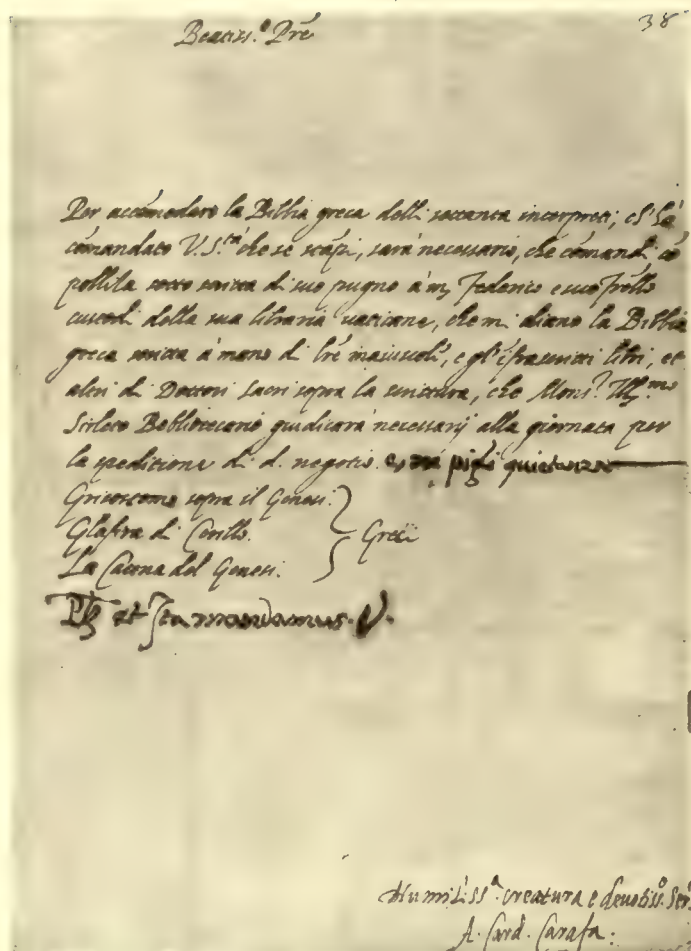 38
Beatiss.º Prē
Per accōmodare la Bibbia greca delli settanta interpreti, ch' hà
cōmandato V. S.tà che se stāpi, sarà necessario, che cōmandi cō
pollita sotto scritta di suo pugno à m. Federico e suo frēllo
custodi della sua libraria vaticana, che mi diano la Bibbia
greca scritta à mano di lrē maiuscole, e gl' ifrascritti libri, et
altri di Dottori sacri sopra la scrittura, che Mons.r Ill.mo
Sirleto Bibliotecario giudicarà necessarij alla giornata per
la speditione di d. negotio. e ne pigli quietanza
Grisostomo sopra il Genesi.
Glafira di Cirillo. Greci
La Catena del Genesi.
et Ita mandamus. V.
Humiliss.ª creatura e devotiss.º Ser.
A. Card. Carafa.